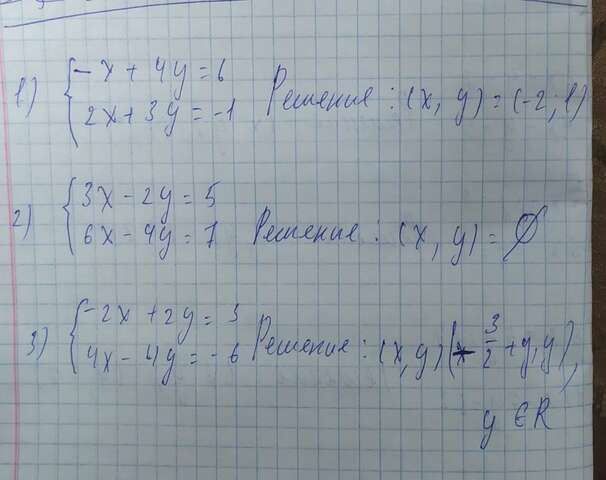 1) { -x + 4y = 6
2x + 3y = -1 Решение : (x, y) = (-2; 1)
2) { 3x - 2y = 5
6x - 4y = 7 Решение : (x, y) = ∅
3) { -2x + 2y = 3
4x - 4y = -6 Решение : (x, y) (- 3/2 + y, y),
y ∈ R